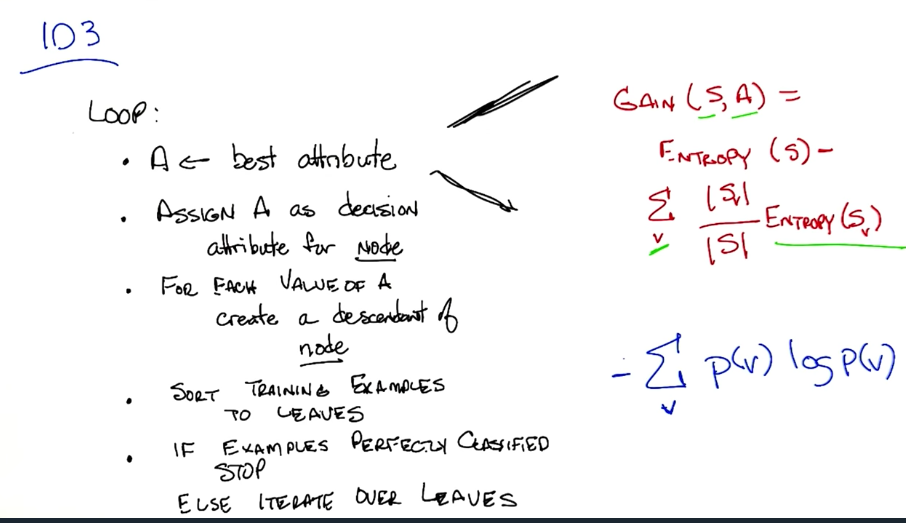 ID3
LOOP:
• A ← best attribute
• ASSIGN A as decision
attribute for NODE
• FOR EACH VALUE OF A
create a descendant of
node
• SORT TRAINING EXAMPLES
TO LEAVES
• IF EXAMPLES PERFECTLY CLASSIFIED
STOP
ELSE ITERATE OVER LEAVES
GAIN (S, A) =
ENTROPY (S) -
∑_v |S_v| / |S| ENTROPY (S_v)
- ∑_v p(v) log p(v)